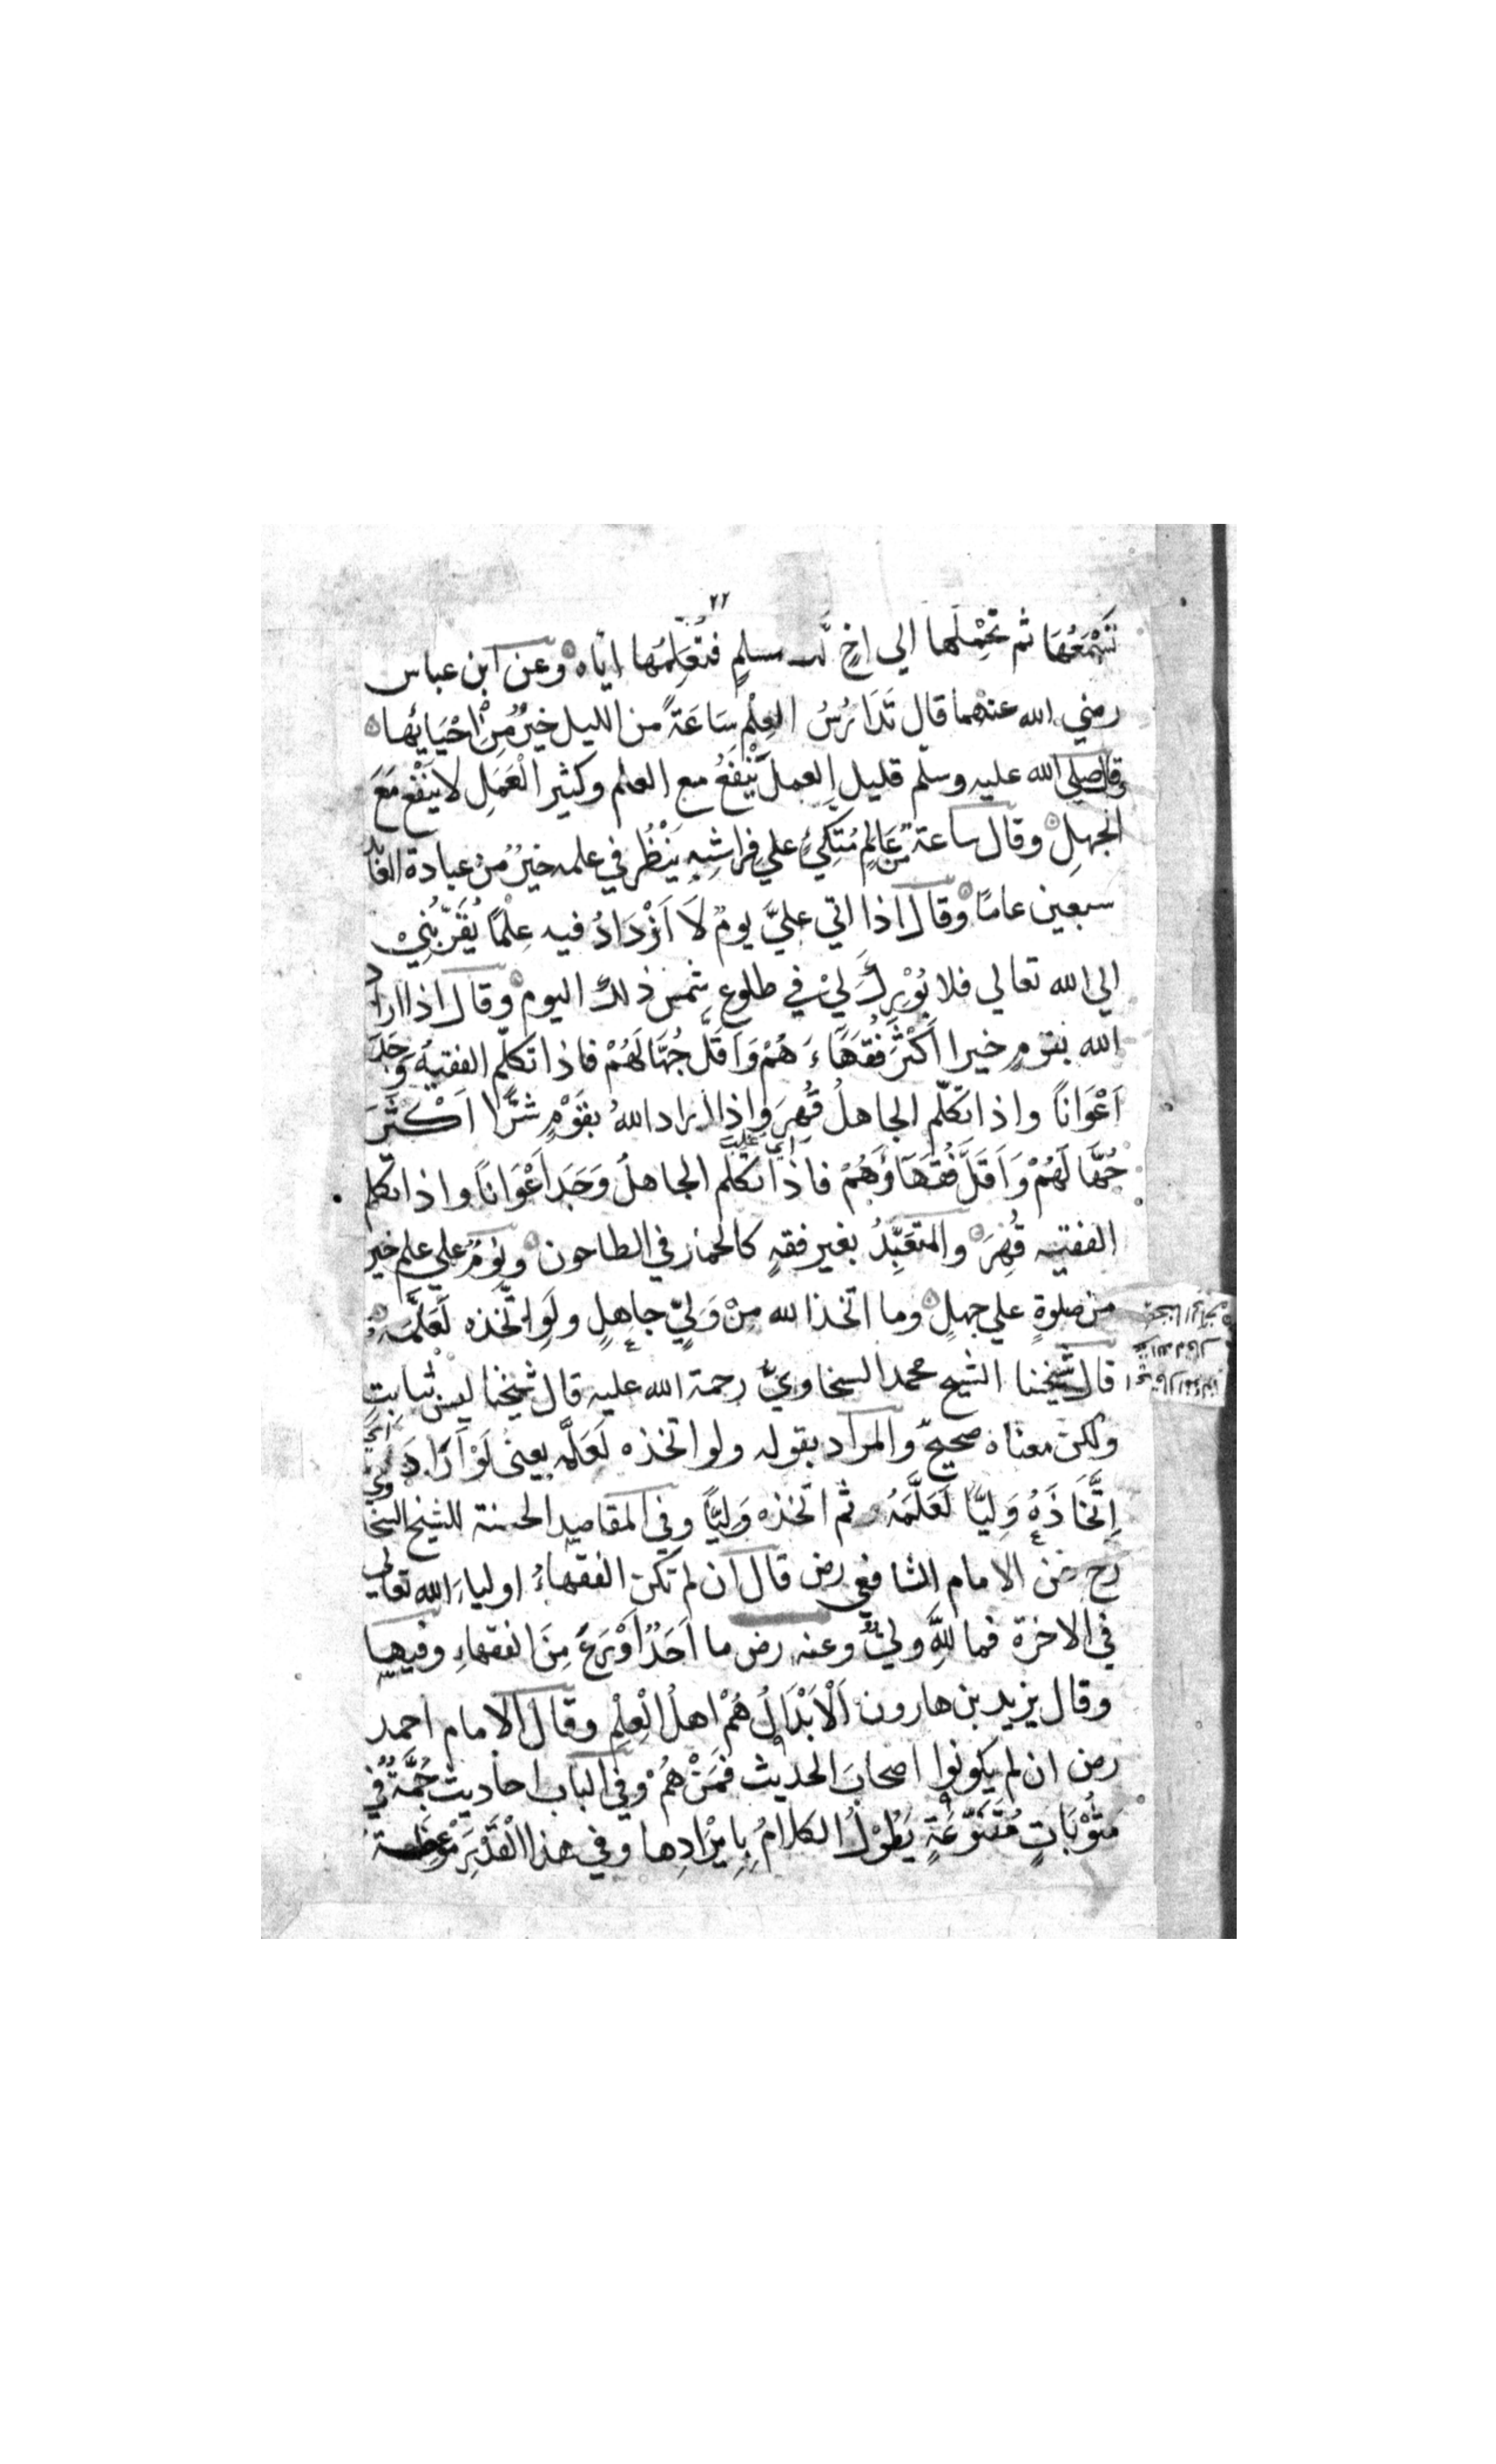 ٢٢
تَسْمَعُهَا ثم تَحْمِلُها الي اخٍ لك مسلمٍ فتُعَلِّمُها اياه وعن ابن عباس
رضي الله عنهما قال تَدَارُسُ العِلْمِ سَاعَةً من الليل خيرٌ مِنْ اِحْيَائِها
وقال صلي الله عليه وسلم قليل العمل يَنْفَعُ مع العلم وكثير الْعَمَلِ لا يَنْفَع مَعَ
الجهلِ وقال ساعة مِنْ عَالِمٍ مُتَّكِئٍ علي فِرَاشِهِ يَنْظُرُ في علمه خيرٌ من عبادة العابد
سبعين عامًا وقال اذا اتي عليَّ يومٌ لَا اَزْدَادُ فيه عِلْمًا يُقَرِّبُنِيْ
الي الله تعالي فلا بُوْرِكَ لِيْ في طلوع شمس ذلك اليوم وقال اذا اراد
الله بقومٍ خيرا اَكْثَرَ فُقَهَاءَ هُمْ وَاَقَلَّ جُهَّالَهُمْ فاذا تكلّم الفقيهُ وَجَدَ
اَعْوَانًا واذا تكلّم الجاهلُ قُهِرَ واذا اراد اللهُ بقَوْمٍ شَرًّا اَكْثَرَ
جُهَّالَهُمْ وَاَقَلَّ فُقَهَاؤَهُمْ فاذا تكلم الجاهلُ وَجَدَ اَعْوَانًا واذا تكلم
الفقيه قُهِرَ والمتعَبِّدُ بغير فقهٍ كالحمار في الطاحون ونومٌ علي علم خير
من صلوةٍ علي جهلٍ وما اتخذ الله مِنْ وَلِيٍّ جاهلٍ ولَوِ اتَّخذه لَعَلَّمَهُ
قال شيخنا الشيخ محمد السخاويُّ رحمة الله عليه قال شيخنا ليس ثبابتٍ
ولكن معناه صحيحٌ والمراد بقوله ولو اتخذه لَعَلَّمه يعني لَوْ اَرَادَ
اِتِّخَاذَهُ وَلِيًّا لَعَلَّمَهُ ثم اتخذه وَلِيًّا وفي المقاصد الحسنة للشيخ السخاوي
رح عن الامام الشافعي رض قال ان لم تكن الفقهاءُ اولياءَ الله تعالي
في الاخرة فما لِلّهِ وليٌّ وعنه رض ما اَحَدٌ اَوْرَعَ مِنَ الفقهاءِ وفيها
وقال يزيد بن هارون اَلْاَبْدَالُ هُمْ اهلُ الْعِلْمِ وقال الامام احمد
رض ان لم يكونوا اصحابَ الحديث فَمَنْ هُمْ وفي الباب احاديث جُمَّةٌ في
مَثُوْبَاتٍ مُتَنَوِّعَةٍ يَطُوْلُ الكلامُ بِاِيْرَادِها وفي هذا الْقَدْرِ مَوْعِظَة